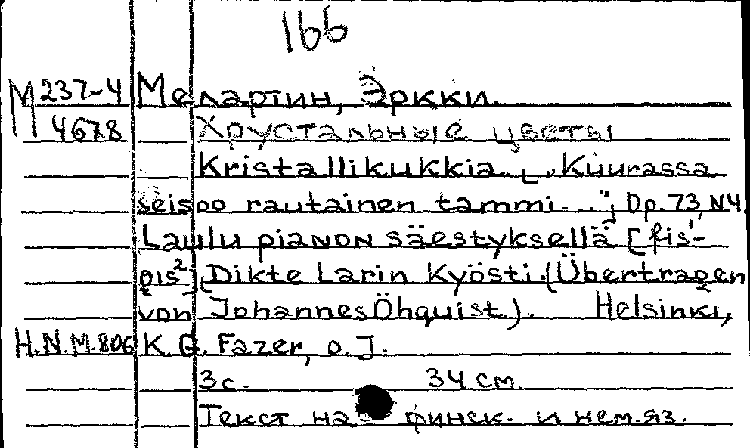 166
M 237-4 Мелартин, Эркки.
4678 Хрустальные цветы
Kristallikukkia. [„Kuurassa
seisoo rautainen tammi..."] Op. 73, N4
Laulu pianon säestyksellä [fis¹-
gis²]. Dikte Larin Kyösti. (Übertragen
von Johannes Öhquist). Helsinki,
H.N.M.806 K. G. Fazer, o. J.
3 с. 34 см.
Текст на финск. и нем. яз.